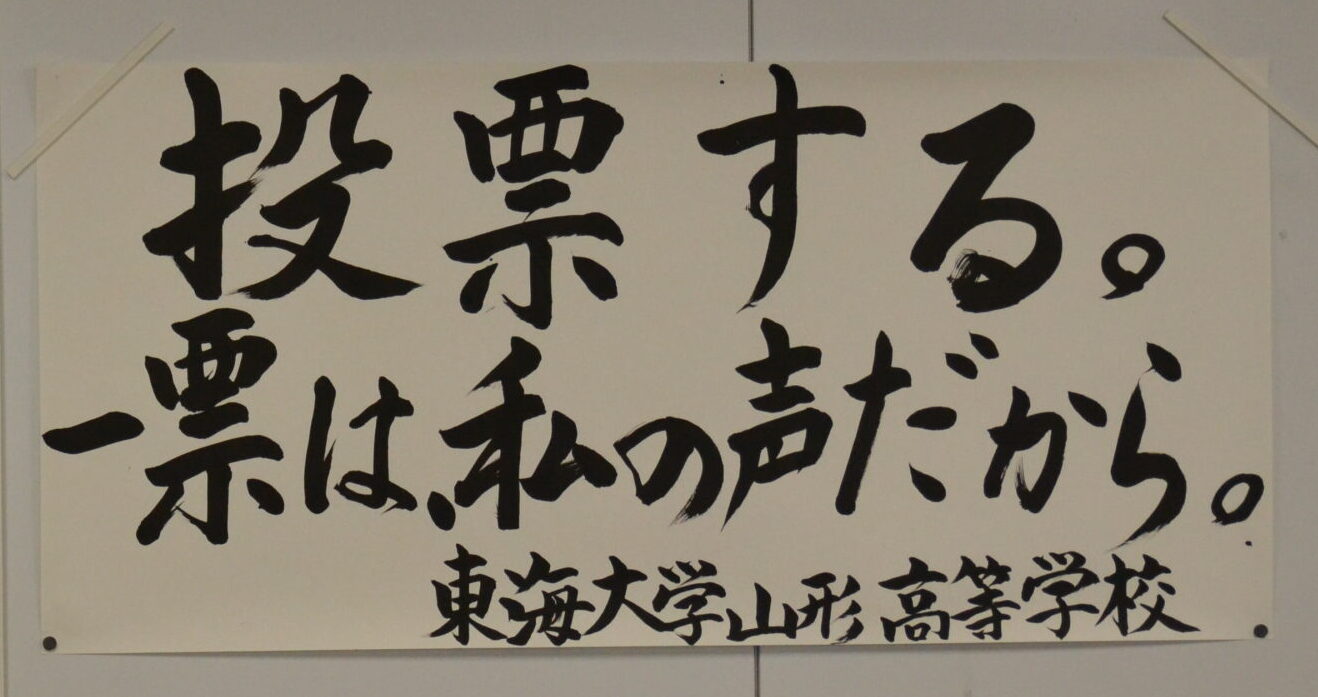 投票する。
一票は、私の声だから。
東海大学山形高等学校